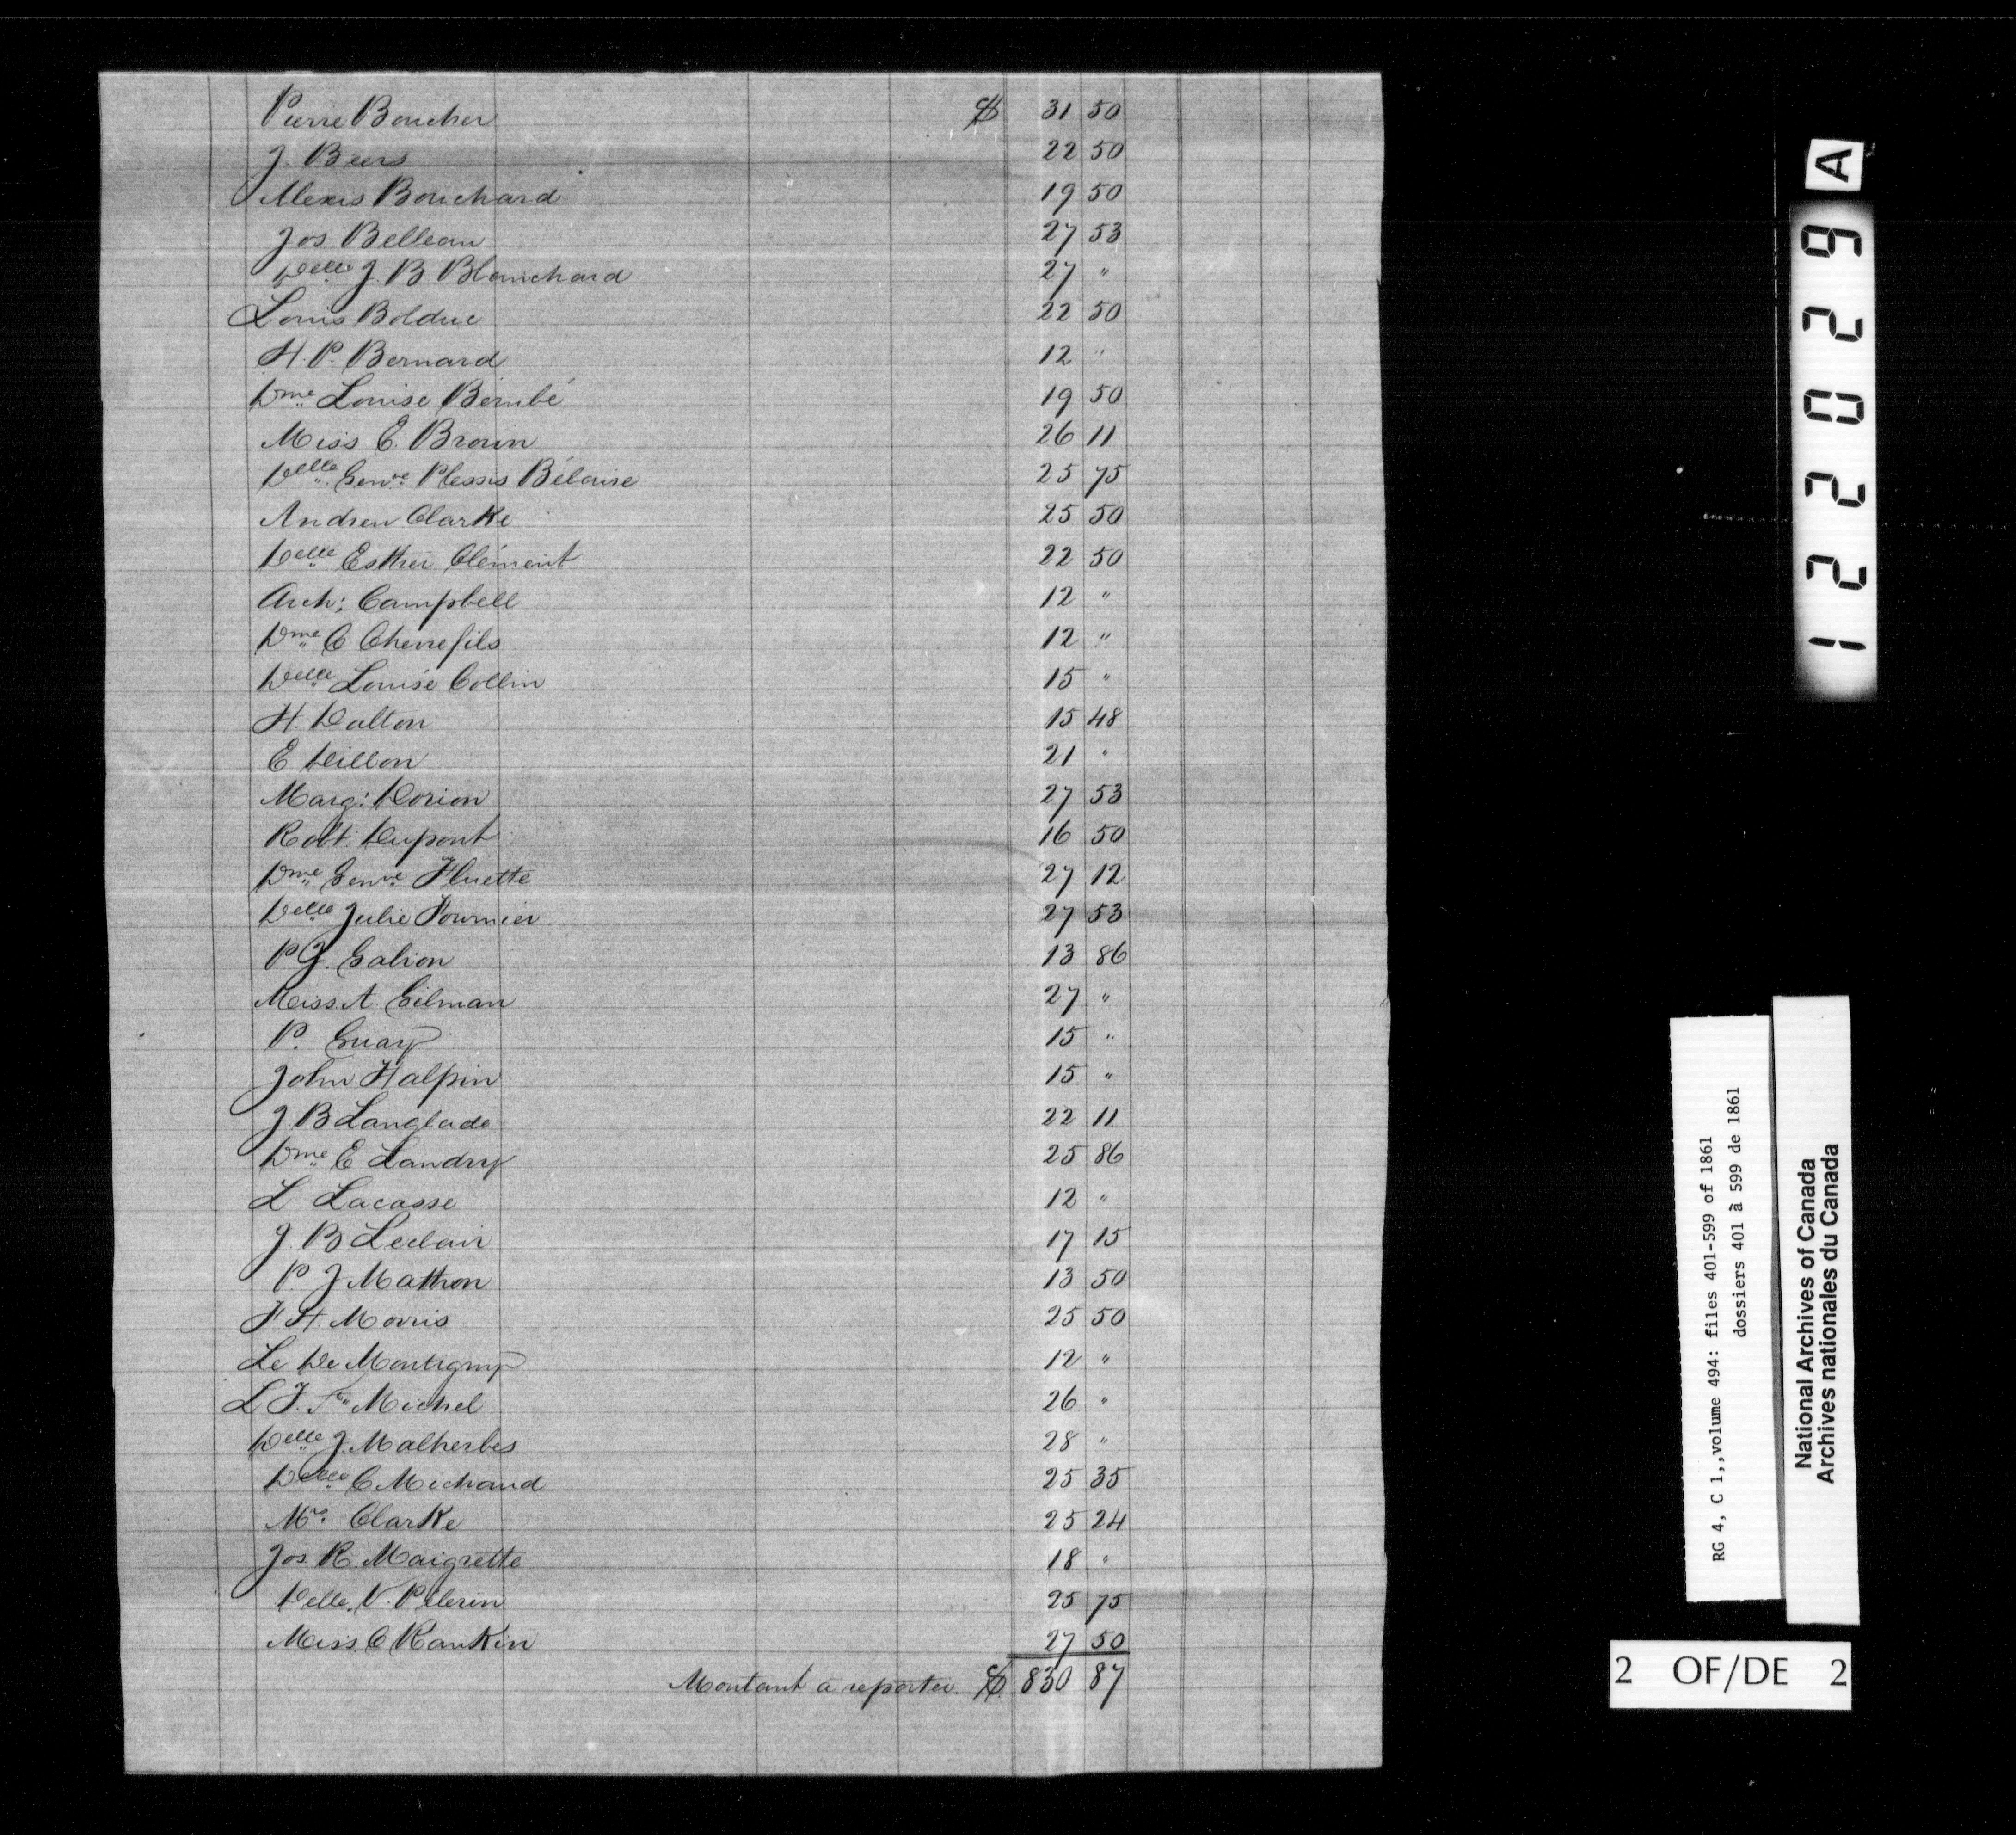 Pierre Boucher $ 31 50
J. Beers 22 50
Alexis Bouchard 19 50
Jos Belleau 27 53
Delle J. B Blanchard 27 "
Louis Bolduc 22 50
H. P. Bernard 12 "
Dme Louise Bérubé 19 50
Miss E. Brown 26 11
Delle Genve Plessis Bélaire 25 75
Andrew Clarke 25 50
Delle Esther Clément 22 50
Arch: Campbell 12 "
Dme C Chenefils 12 "
Delle Louise Collin 15 "
H. Dalton 15 48
E Dillon 21 "
Marg: Dorion 27 53
Robt Dupont 16 50
Dme Genve Fluette 27 12
Delle Julie Fournier 27 53
P J. Galion 13 86
Miss. A. Gilman 27 "
P. Guay 15 "
John Halpin 15 "
J. B Langlade 22 11
Dme E Landry 25 86
L Lacasse 12 "
J. B Leclair 17 15
P. J Mathon 13 50
F H. Morris 25 50
Le De Montigny 12 "
L F. Michel 26 "
Delle J Malherbes 28 "
Delle C Michaud 25 35
Mrs Clarke 25 24
Jos R. Maigrette 18 "
Delle. V. Pelerin 25 75
Miss. C Rankin 27 50
Montant à reporter. $ 830 87
122029 A
RG 4, C 1,,volume 494: files 401-599 of 1861
dossiers 401 à 599 de 1861
National Archives of Canada
Archives nationales du Canada
2 OF/DE 2